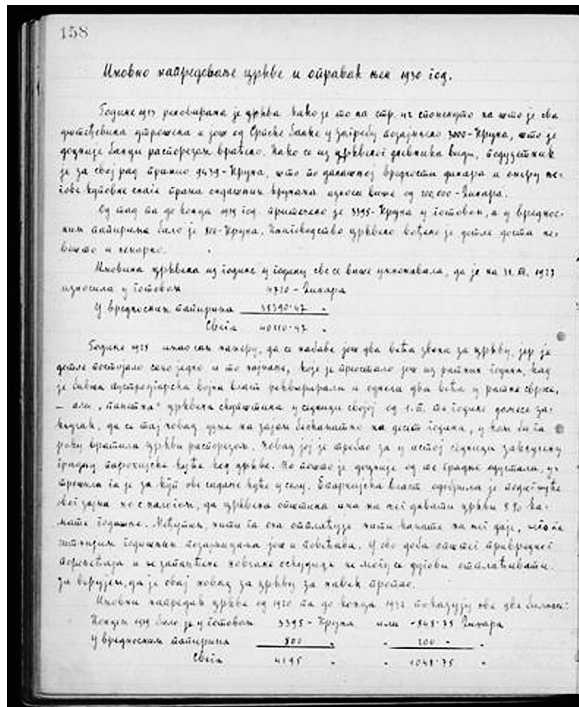 158
Имовно напредовање цркве и оправак њен 1930 год.
Године 1913 реновирана је црква како је то на стр. 42 споменуто на што је сва
готовина утрошена и још од Српске банке у Загребу позајмљено 3000 - Круна, што је
доцније банци расп­орезом враћено. Како се из црквеног дневника види, подузетник
је за свој рад примио 9439 - Круна, што по данашњој вредности динара и онеру ње-
гове куповне снаге према ондашњим крунама износи више од 200,000 - Динара.
Од тад па до конца 1919 год. притечено је 3395 - Круна у готовом, а у вреднос-
ним папирима било је 800 - Круна. Књиговодство црквено вођено је дотле доста не-
вешто и немарно.
Имовина црквена из године у годину све се више умножавала, да је на 31. XII. 1927
износила у готовом 4720 - Динара
У вредносним папирима 35390·47 "
Свега 40110·47 "
Године 1928 имао сам намеру, да се набаве још два већа звона за цркву, јер је
дотле постојало само једно и то најмање, које је преостало још из ратних година, кад
је бивша аустроугарска војна власт реквирирала и однела два већа у ратне сврхе,
- али "паметна" црквена скупштина у седници својој од те године донесе за-
кључак, да се тај новац узме на зајам бескаматно на десет година, у ком би га
року вратила цркви распорезом. Новац јој је требао за у истој седници закључену
градњу парохијске куће код цркве. Но пошто је доцније од те градње одустала, у-
трошила га је за куп ове садање куће у селу. Епархијска власт одобрила је подигнуће
овог зајма но с налогом, да црквена општина има на њег давати цркви 5% ка-
мате годишње. Међутим, нити га она отплаћује нити камате на њег даје, него га
годишњим позајмицама још и повећава. У ово доба опште привредног
поремећаја и незапамћене новчане оскудице не могу се дугови отплаћивати.
Ја верујем, да је овај новац за цркву за навек пропао.
Имовни напредак цркве од 1920 па до конца 1932 показују ове две билансе:
Концем 1919 било је у готовом 3395 - Круна или 848·75 Динара
У вредносним папирима 800 " " 200 - "
Свега 4195 " 1048·75 "